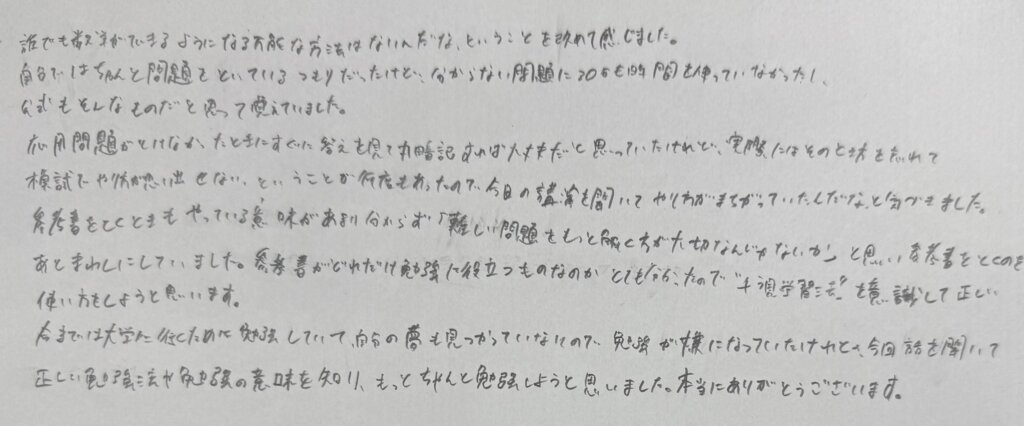 誰でも数学ができるようになる万能な方法はないんだな、ということを改めて感じました。
自分ではちゃんと問題をといているつもりだったけど、分からない問題に20分も時間を使っていなかったし、
公式もそんなものだと思って覚えていました。
応用問題がとけなかったときにすぐに答えを見て丸暗記すれば大丈夫だと思っていたけれど、実際にはそのとき方を忘れて
模試でやり方が思い出せない、ということが何度もあったので、今日の講演を聞いてやり方がまちがっていたんだな、と気づきました。
参考書をとくときもやっている意味があまり分からず「難しい問題をもっと解く方が大切なんじゃないか」と思い、参考書をとくのを
あとまわしにしていました。参考書がどれだけ勉強に役立つものなのかとても分かったので"十視学習法"を意識して正しい
使い方をしようと思います。
今までは大学に行くために勉強していて、自分の夢も見つかっていないので、勉強が嫌になっていたけれど、今回話を聞いて
正しい勉強法や勉強の意味を知り、もっとちゃんと勉強しようと思いました。本当にありがとうございます。